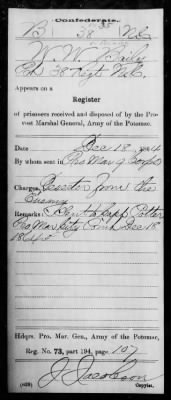 Confederate.
B 38 N.C.
W. W.
Co. 38 Regt. N.C.
Appears on a
Register
of prisoners received and disposed of by the Pro-
vost Marshal General, Army of the Potomac.
Date Dec 18, 1864
By whom sent in Pro Mar 9 Corps
Charges, Deserter from the
Enemy
Remarks:
Pro Mar City Point Dec 18
1864
Hdqrs. Pro. Mar. Gen., Army of the Potomac,
Reg. No. 73, part 194, page 107
J Jacobson
Copyist.